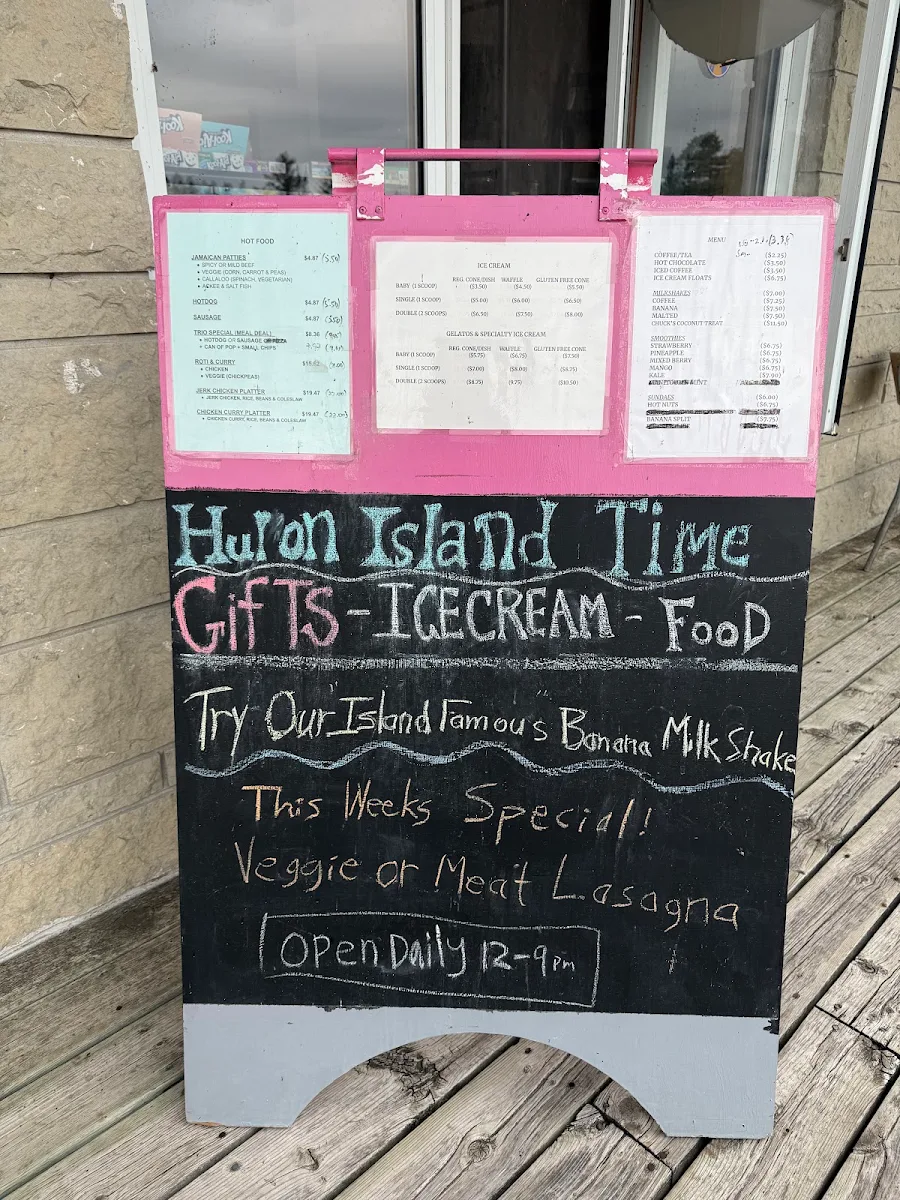 KoolAid
HOT FOOD
JAMAICAN PATTIES $4.87 (5.50)
• SPICY OR MILD BEEF
• VEGGIE (CORN, CARROT & PEAS)
• CALLALOO (SPINACH, VEGETARIAN)
• ACKEE & SALT FISH
HOTDOG $4.87 (5.50)
SAUSAGE $4.87 (5.50)
TRIO SPECIAL (MEAL DEAL) $8.36
• HOTDOG OR SAUSAGE OR PIZZA
• CAN OF POP + SMALL CHIPS
ROTI & CURRY
• CHICKEN
• VEGGIE (CHICKPEAS)
JERK CHICKEN PLATTER $19.47 (22.00)
• JERK CHICKEN, RICE, BEANS & COLESLAW
CHICKEN CURRY PLATTER $19.47 (22.00)
• CHICKEN CURRY, RICE, BEANS & COLESLAW
ICE CREAM
REG. CONE/DISH WAFFLE GLUTEN FREE CONE
BABY (1 SCOOP) ($3.50) ($4.50) ($5.50)
SINGLE (1 SCOOP) ($5.00) ($6.00) ($6.50)
DOUBLE (2 SCOOPS) ($6.50) ($7.50) ($8.00)
GELATOS & SPECIALTY ICE CREAM
REG. CONE/DISH WAFFLE GLUTEN FREE CONE
BABY (1 SCOOP) ($5.75) ($6.75) ($7.50)
SINGLE (1 SCOOP) ($7.00) ($8.00) ($8.75)
DOUBLE (2 SCOOPS) ($8.75) (9.75) ($10.50)
MENU
COFFEE/TEA ($2.25)
HOT CHOCOLATE ($3.50)
ICED COFFEE ($3.50)
ICE CREAM FLOATS ($6.75)
MILKSHAKES ($7.00)
COFFEE ($7.25)
BANANA ($7.50)
MALTED ($7.50)
CHUCK'S COCONUT TREAT ($11.50)
SMOOTHIES
STRAWBERRY ($6.75)
PINEAPPLE ($6.75)
MIXED BERRY ($6.75)
MANGO ($6.75)
KALE ($7.90)
SUNDAES ($6.00)
HOT NUTS ($6.75)
BANANA SPLIT ($7.75)
Huron Island Time
GifTs - ICECREAM - FooD
Try Our "Island Famous" Banana Milk Shake
This Weeks Special!
Veggie or Meat Lasagna
OPen Daily 12-9pm